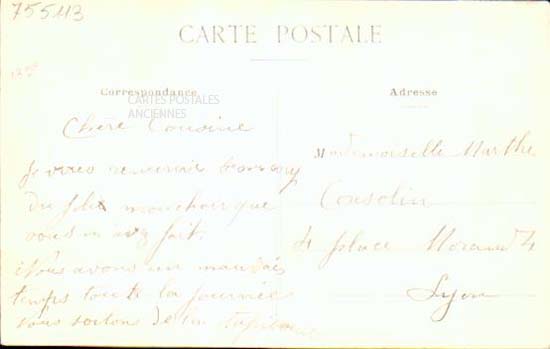 755113
CARTE POSTALE
135
Correspondance
Adresse
CARTES POSTALES
ANCIENNES
Chère Cousine
Je vous remercie beaucoup
du joli mouchoir que
vous m'avez fait.
Nous avons un mauvais
temps toute la journée
nous sortons de la
Mademoiselle Marthe
Cousolin
4 place Morand 4
Lyon